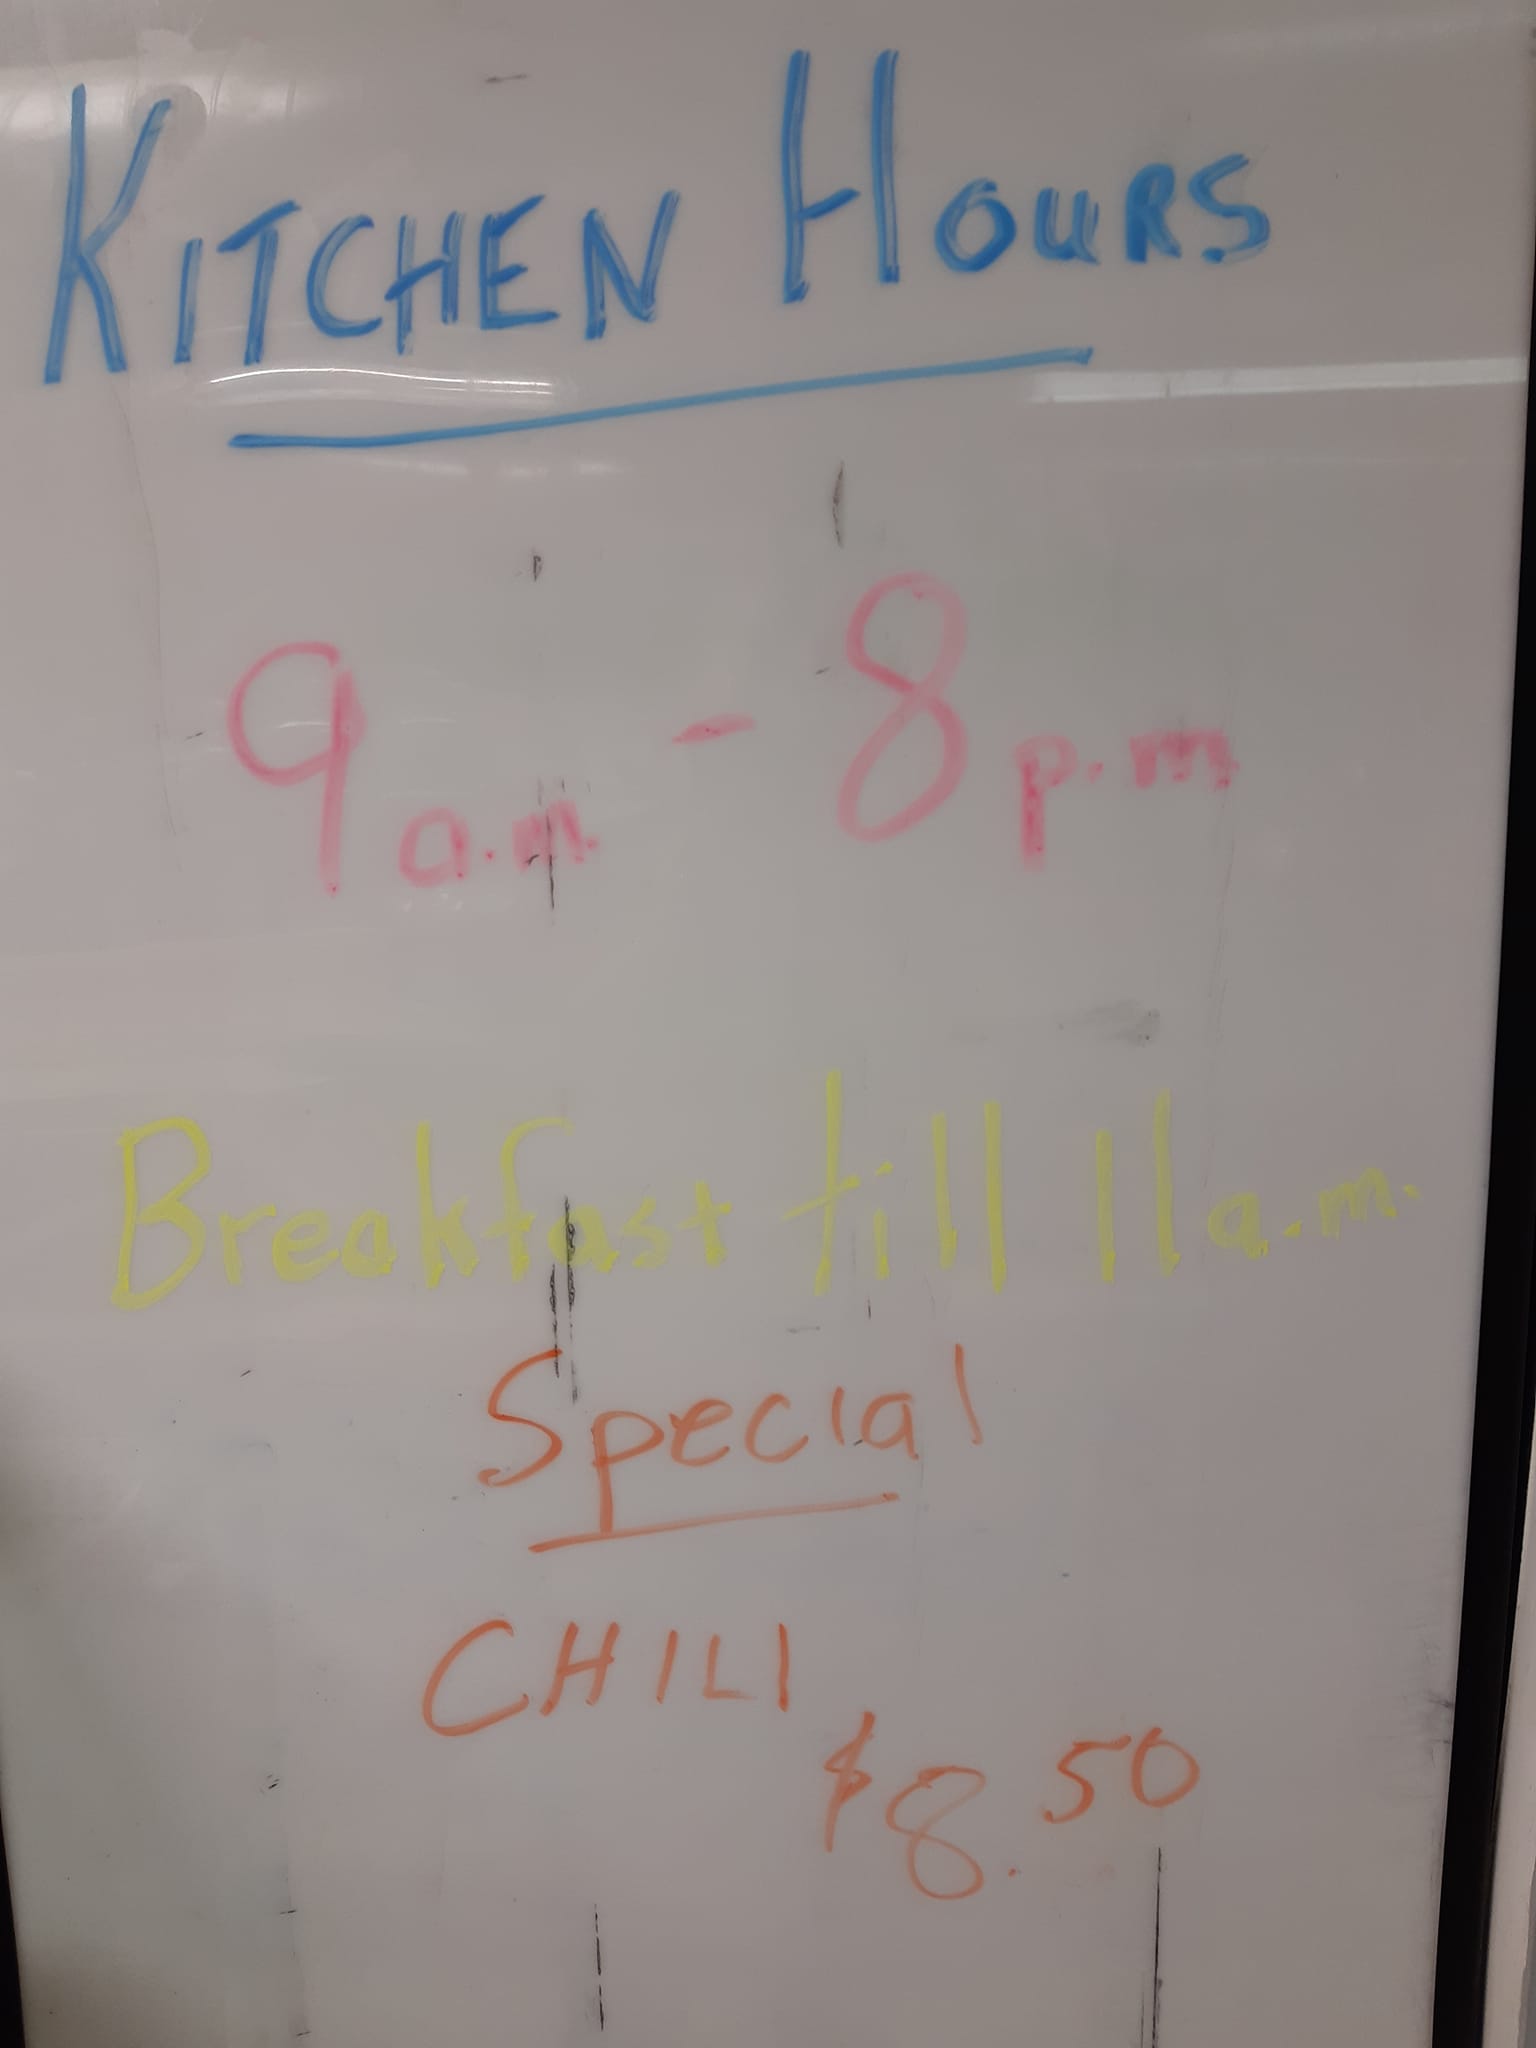 KITCHEN HOURS
9 a.m. - 8 p.m
Breakfast till 11 a.m.
Special
CHILI
$8.50